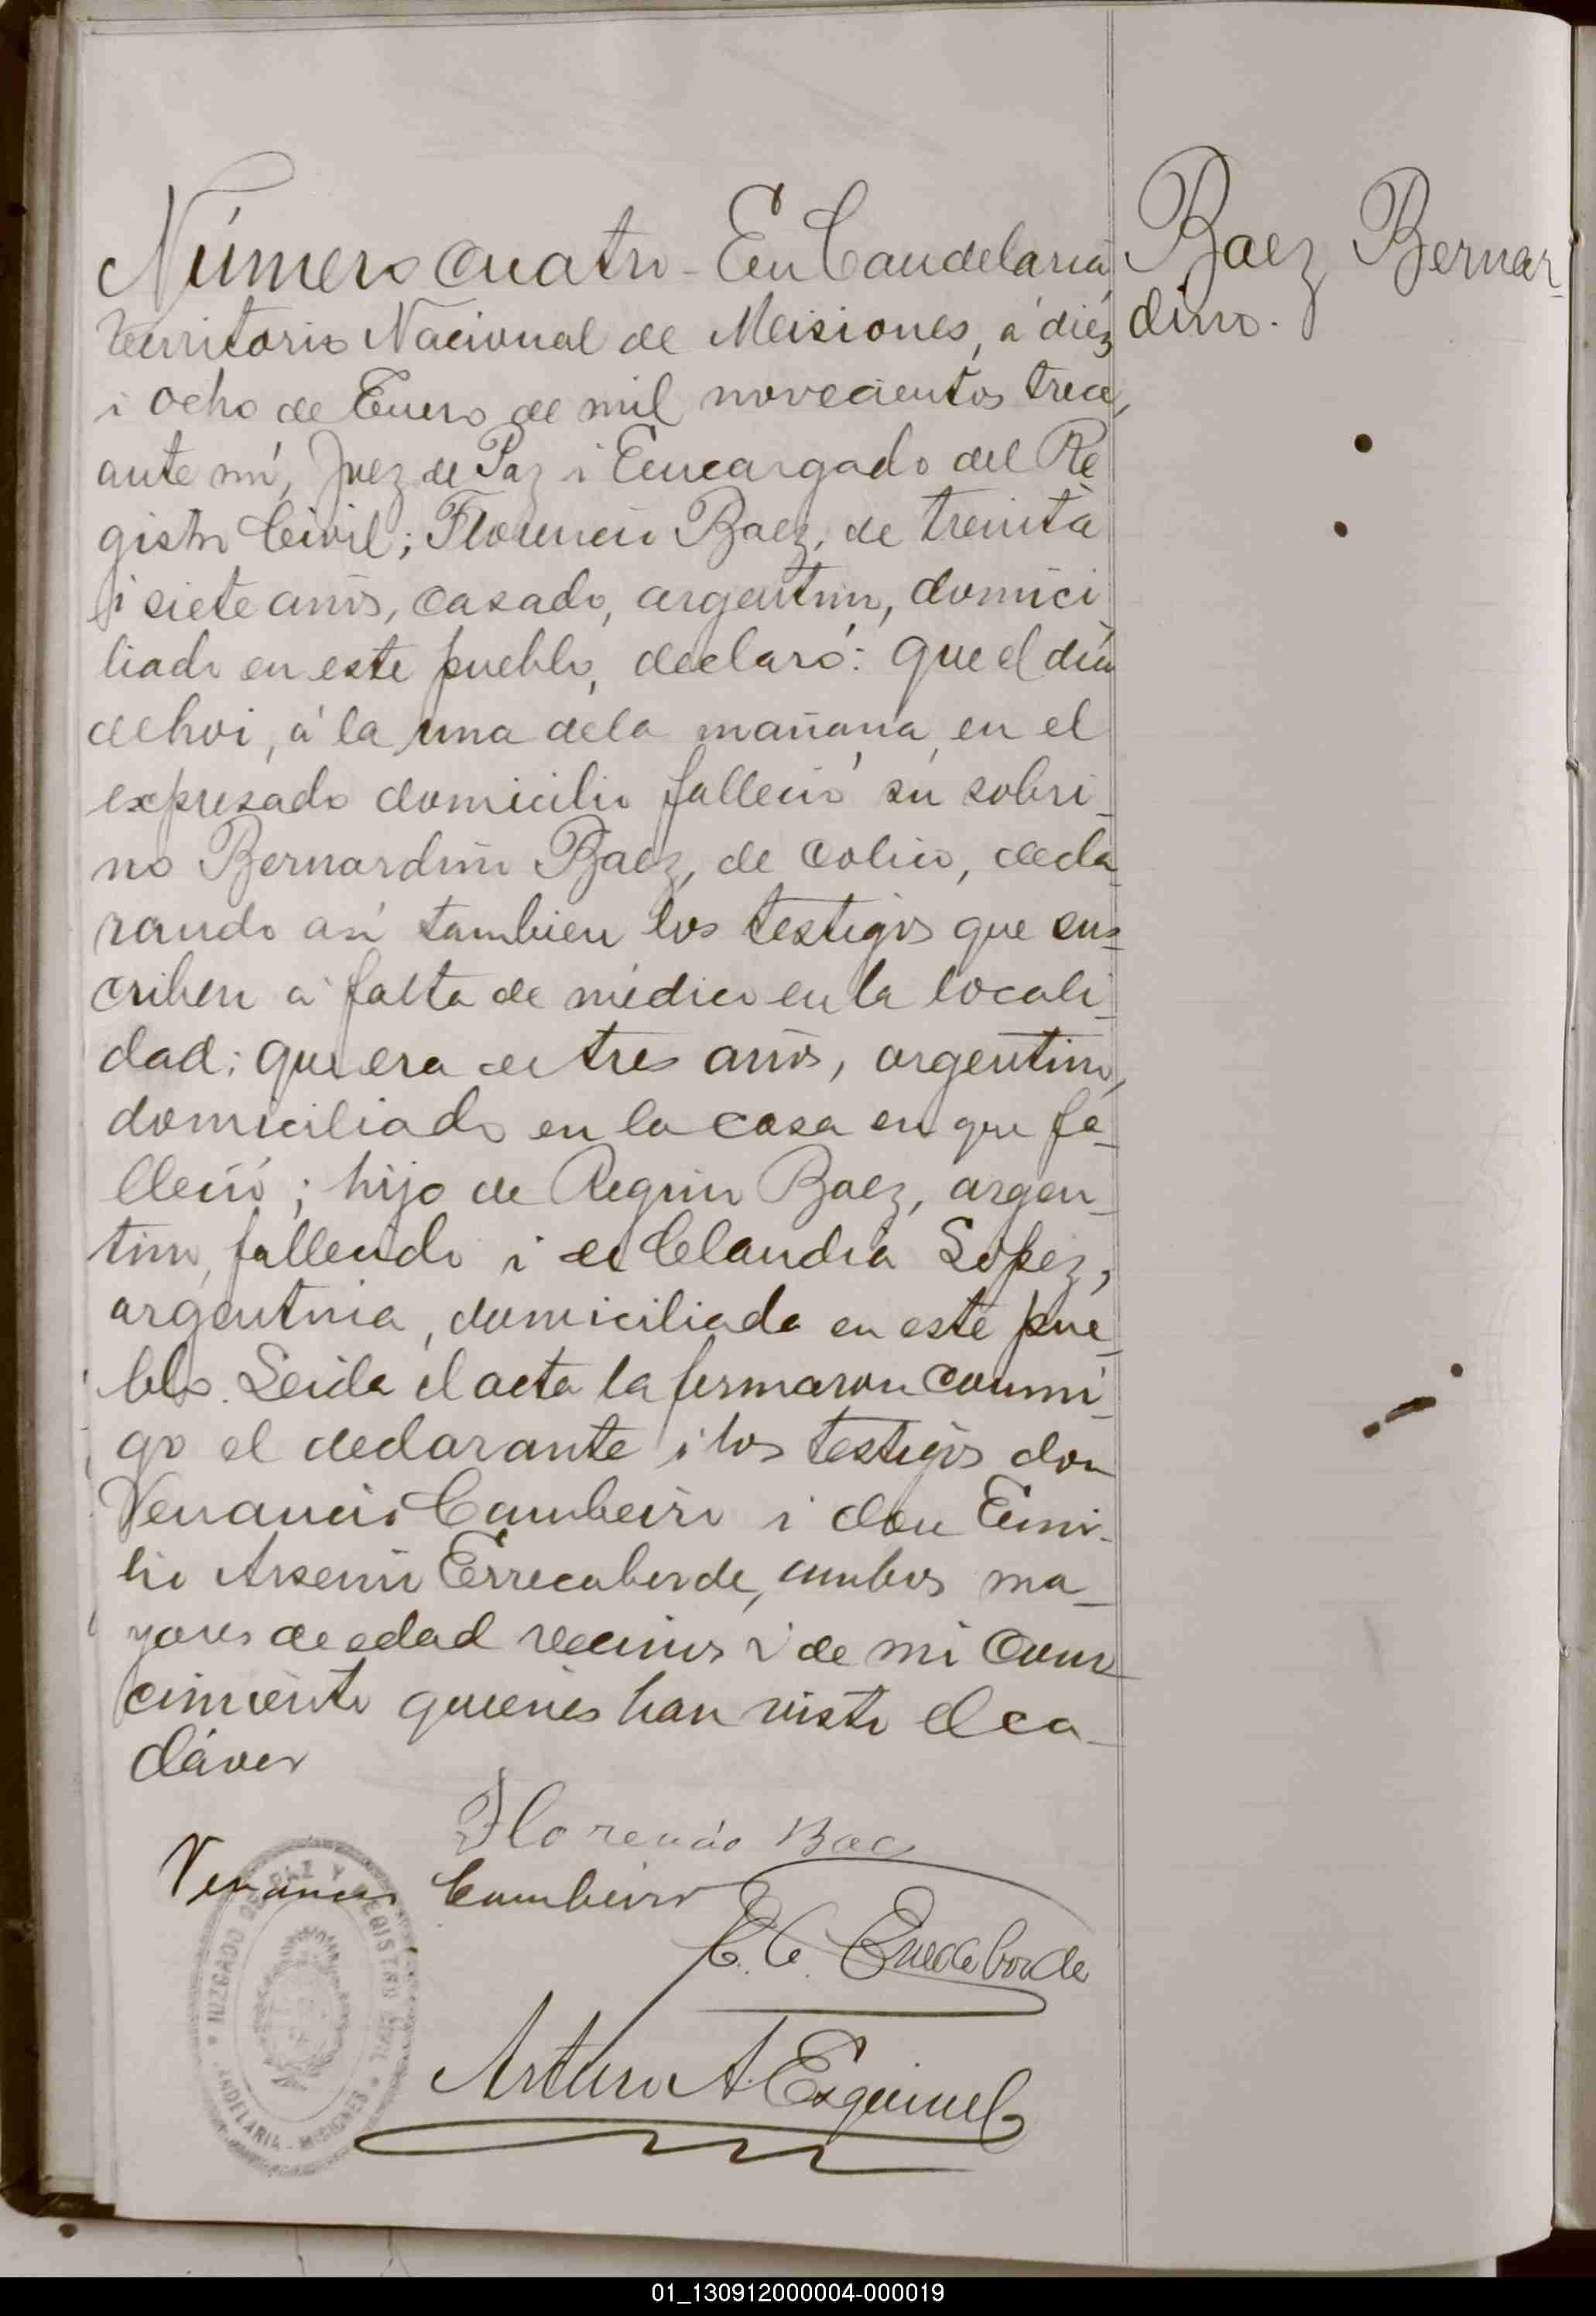 Número cuatro - En Candelaria
Baez Bernar-
dino.
Territorio Nacional de Misiones, á diéz
i ocho de Enero de mil novecientos trece,
ante mí, Juez de Paz i Encargado del Re
gistro Civil; Florencio Baez, de treinta
i siete años, casado, argentino, domici
liado en este pueblo, declaró: que el día
de hoi, á la una de la mañana, en el
expresado domicilio falleció su sobri-
no Bernardino Baez, de colico, decla-
rando así tambien los testigos que sus-
criben á falta de médico en la locali-
dad; que era de tres años, argentino,
domiciliado en la casa en que fa-
lleció; hijo de Baez, argen-
tino, fallecido i de Claudia Lopez,
argentina, domiciliada en este pue-
blo. Leida el acta la firmaron conmi-
go el declarante i los testigos don
Venancio Cambeiro i don Emi-
lio Arsenio Errecaborde, ambos ma-
yores de edad vecinos i de mi cono
cimiento quienes han visto el ca-
dáver
Florencio Baez
Venancio Cambeiro
Errecaborde
Arturo A. Esquivel
JUZGADO DE PAZ Y REGISTRO CIVIL
CANDELARIA - MISIONES
01_130912000004-000019